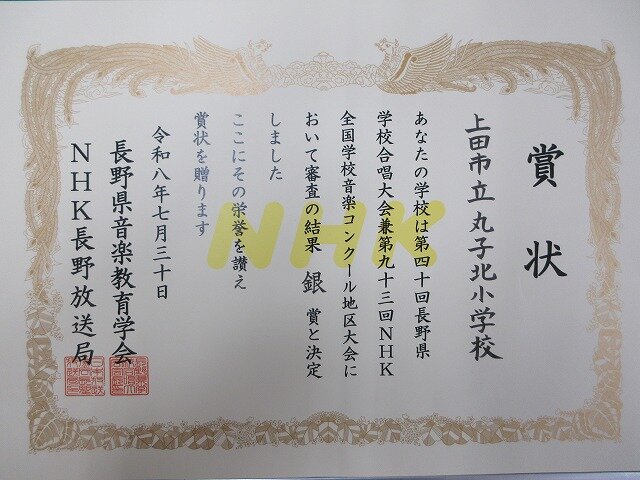 賞状
上田市立丸子北小学校
あなたの学校は第四十回長野県
学校合唱大会兼第九十三回NHK
全国学校音楽コンクール地区大会に
おいて審査の結果 銀 賞と決定
しました
ここにその栄誉を讃え
賞状を贈ります
令和八年七月三十日
長野県音楽教育学会
NHK長野放送局
NHK